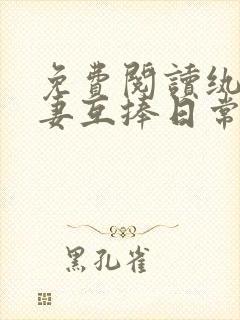 免費閱讀纨
妻互捧日常
黑孔雀